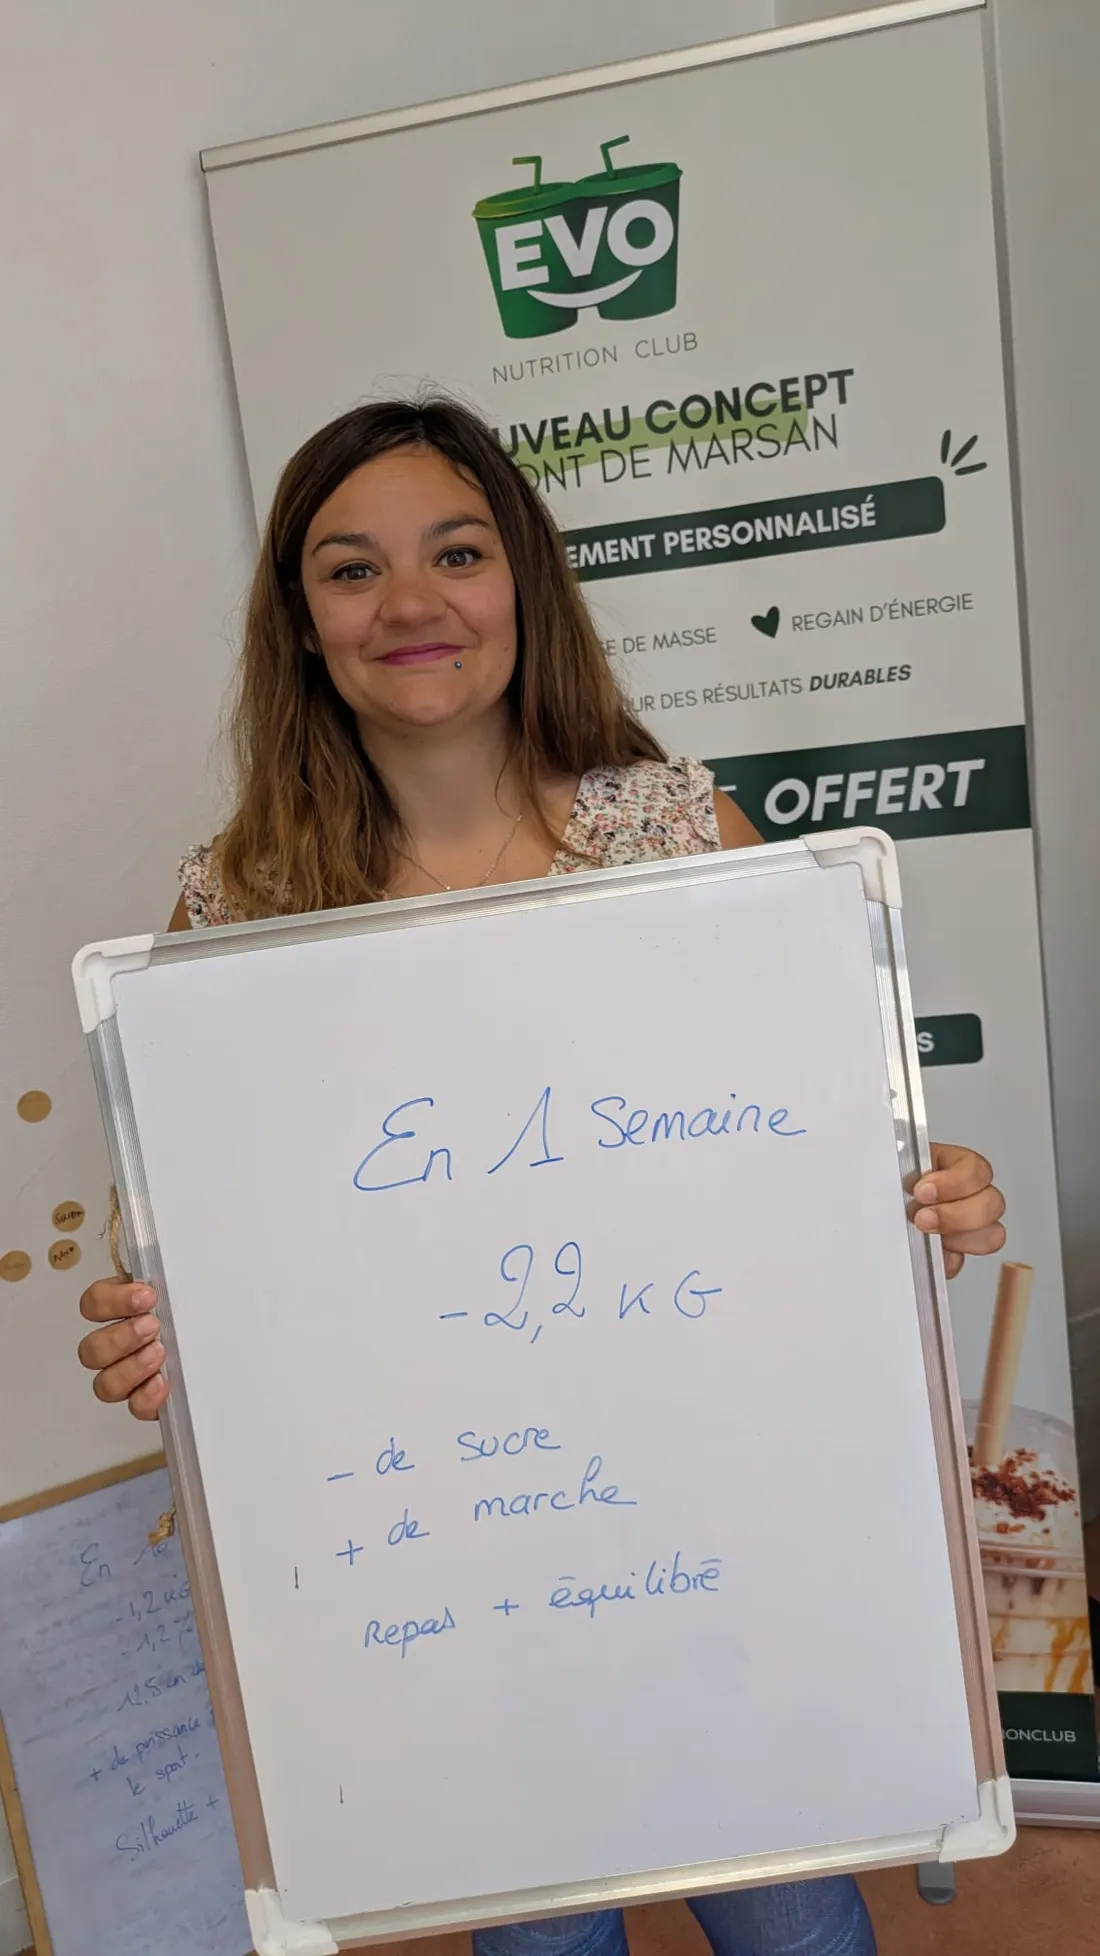 EVO
NUTRITION CLUB
UVEAU CONCEPT
ONT DE MARSAN
EMENT PERSONNALISÉ
E DE MASSE
REGAIN D'ÉNERGIE
UR DES RÉSULTATS DURABLES
OFFERT
S
En 1 Semaine
-2,2 KG
- de sucre
+ de marche
Repas + équilibré
IONCLUB
En
-1,2 KG
-1,2
-12,5 cm de
+ de puissance
le sport.
Silhouette +